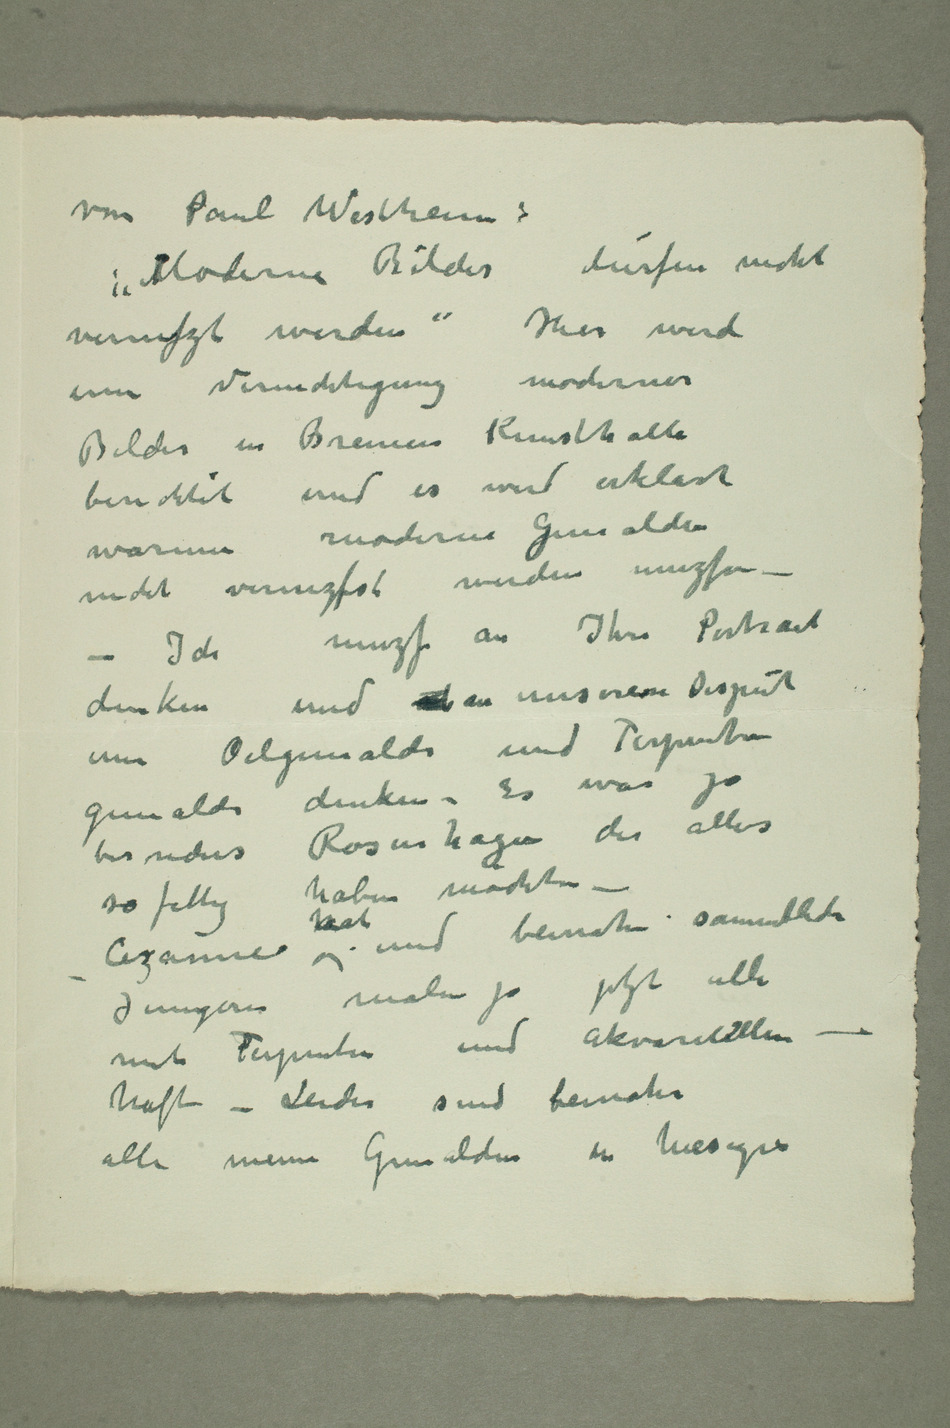 von Paul Westheim:
„Moderne Bilder dürfen nicht
vernifzt werden“ Hier wird
eine Vernichtigung moderner
Bilder in Bremen Kunsthalle
berichtet und es wird erklärt
warum moderne Gemälden
nicht vernizfst werden muzfen —
— Ich muzf an Ihre Portrait
denken und an unseren Disput
um Oelgemälde und Terpentin
gemälde denken – Es war ja
besonders Rosenhagen der alles
so fettig haben möchte —
– Cezanne hat und beinahe sammtliche
Jüngere malen ja jetzt alle
mit Terpentin und akvarellen —
haft – Leider sind beinahe
alle meine Gemälden in hiesiges